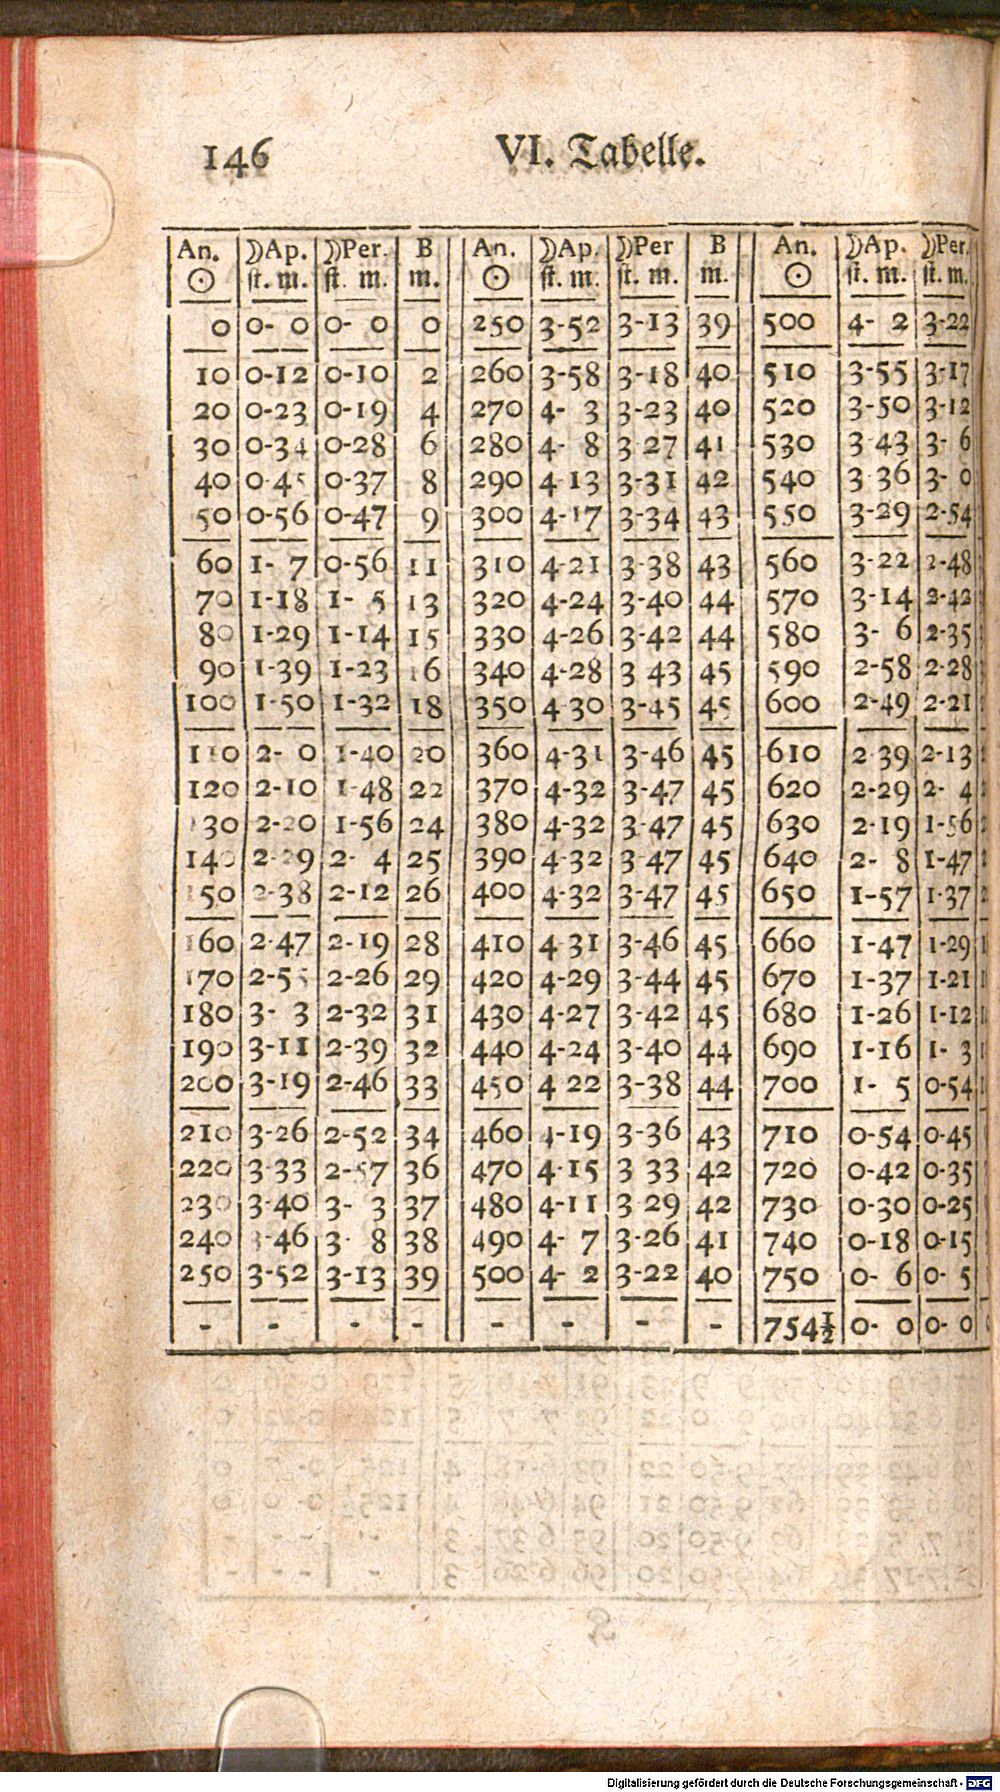 146 VI. Tabelle.
An. ☽Ap. ☽Per. B An. ☽Ap. ☽Per B An. ☽Ap. ☽Per.
☉ ſt. m. ſt. m. m. ☉ ſt. m. ſt. m. m. ☉ ſt. m. ſt. m.
0 0- 0 0- 0 0 250 3-52 3-13 39 500 4- 2 3-22
10 0-12 0-10 2 260 3-58 3-18 40 510 3-55 3-17
20 0-23 0-19 4 270 4- 3 3-23 40 520 3-50 3-12
30 0-34 0-28 6 280 4- 8 3 27 41 530 3 43 3- 6
40 0-45 0-37 8 290 4 13 3-31 42 540 3 36 3- 0
50 0-56 0-47 9 300 4-17 3-34 43 550 3-29 2-54
60 1- 7 0-56 11 310 4-21 3-38 43 560 3-22 2-48
70 1-18 1- 5 13 320 4-24 3-40 44 570 3-14 2-42
80 1-29 1-14 15 330 4-26 3-42 44 580 3- 6 2-35
90 1-39 1-23 16 340 4-28 3 43 45 590 2-58 2-28
100 1-50 1-32 18 350 4 30 3-45 45 600 2-49 2-21
110 2- 0 1-40 20 360 4-31 3-46 45 610 2 39 2-13
120 2-10 1-48 22 370 4-32 3-47 45 620 2-29 2- 4
130 2-20 1-56 24 380 4-32 3-47 45 630 2-19 1-56
140 2-29 2- 4 25 390 4-32 3 47 45 640 2- 8 1-47
150 2-38 2-12 26 400 4-32 3-47 45 650 1-57 1-37
160 2-47 2-19 28 410 4 31 3-46 45 660 1-47 1-29
170 2-55 2-26 29 420 4-29 3-44 45 670 1-37 1-21
180 3- 3 2-32 31 430 4-27 3-42 45 680 1-26 1-12
190 3-11 2-39 32 440 4-24 3-40 44 690 1-16 1- 3
200 3-19 2-46 33 450 4 22 3-38 44 700 1- 5 0-54
210 3-26 2-52 34 460 4-19 3-36 43 710 0-54 0-45
220 3 33 2-57 36 470 4-15 3 33 42 720 0-42 0-35
230 3-40 3- 3 37 480 4-11 3 29 42 730 0-30 0-25
240 3-46 3- 8 38 490 4- 7 3-26 41 740 0-18 0-15
250 3-52 3-13 39 500 4- 2 3-22 40 750 0- 6 0- 5
- - - - - - - - 754½ 0- 0 0- 0
Digitalisierung gefördert durch die Deutsche Forschungsgemeinschaft - DFG